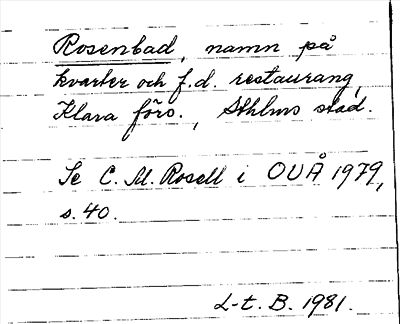 Rosenbad, namn på
kvarter och f.d. restaurang,
Klara förs., Sthlms stad.
Se C. M. Rosell i OUÅ 1979,
s. 40.
L-t. B. 1981.